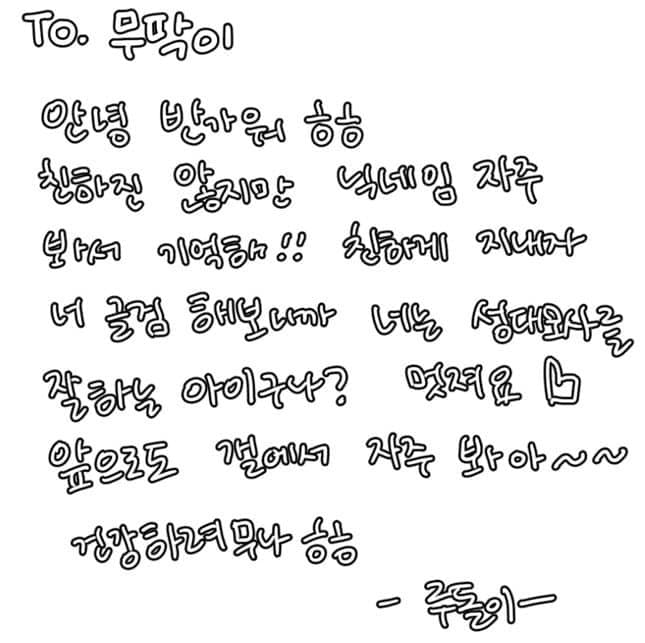 To. 무딱이
안녕 반가워 흐흐
친하진 않지만 닉네임 자주
봐서 기억해!! 친하게 지내자
너 글검 해보니까 너는 성대모사를
잘하는 아이구나? 멋져요
앞으로도 갤에서 자주 봐아~~
건강하려무나 흐흐
- 루돌이-